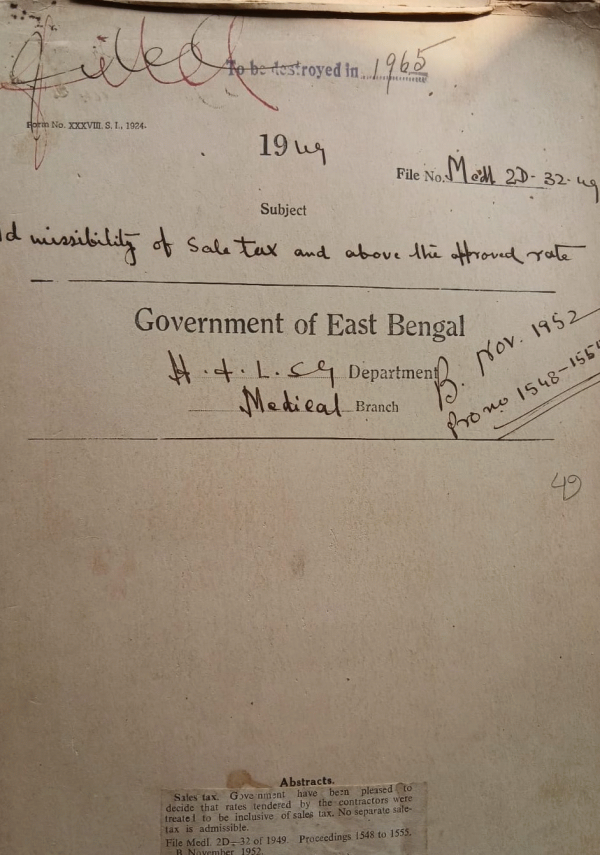 Filed
To be destroyed in 1965
Form No. XXXVIII. S. I., 1924.
1949
File No. Medl 2D-32-49
Subject
Admissibility of Sale tax and above the approved rate
Government of East Bengal
H. & L. S G Department
Medical Branch
B. Nov. 1952
Pro no 1548-1555
49
Abstracts.
Sales tax. Government have been pleased to
decide that rates tendered by the contractors were
treated to be inclusive of sales tax. No separate sale-
tax is admissible.
File Medl. 2D-32 of 1949. Proceedings 1548 to 1555.
B November 1952.